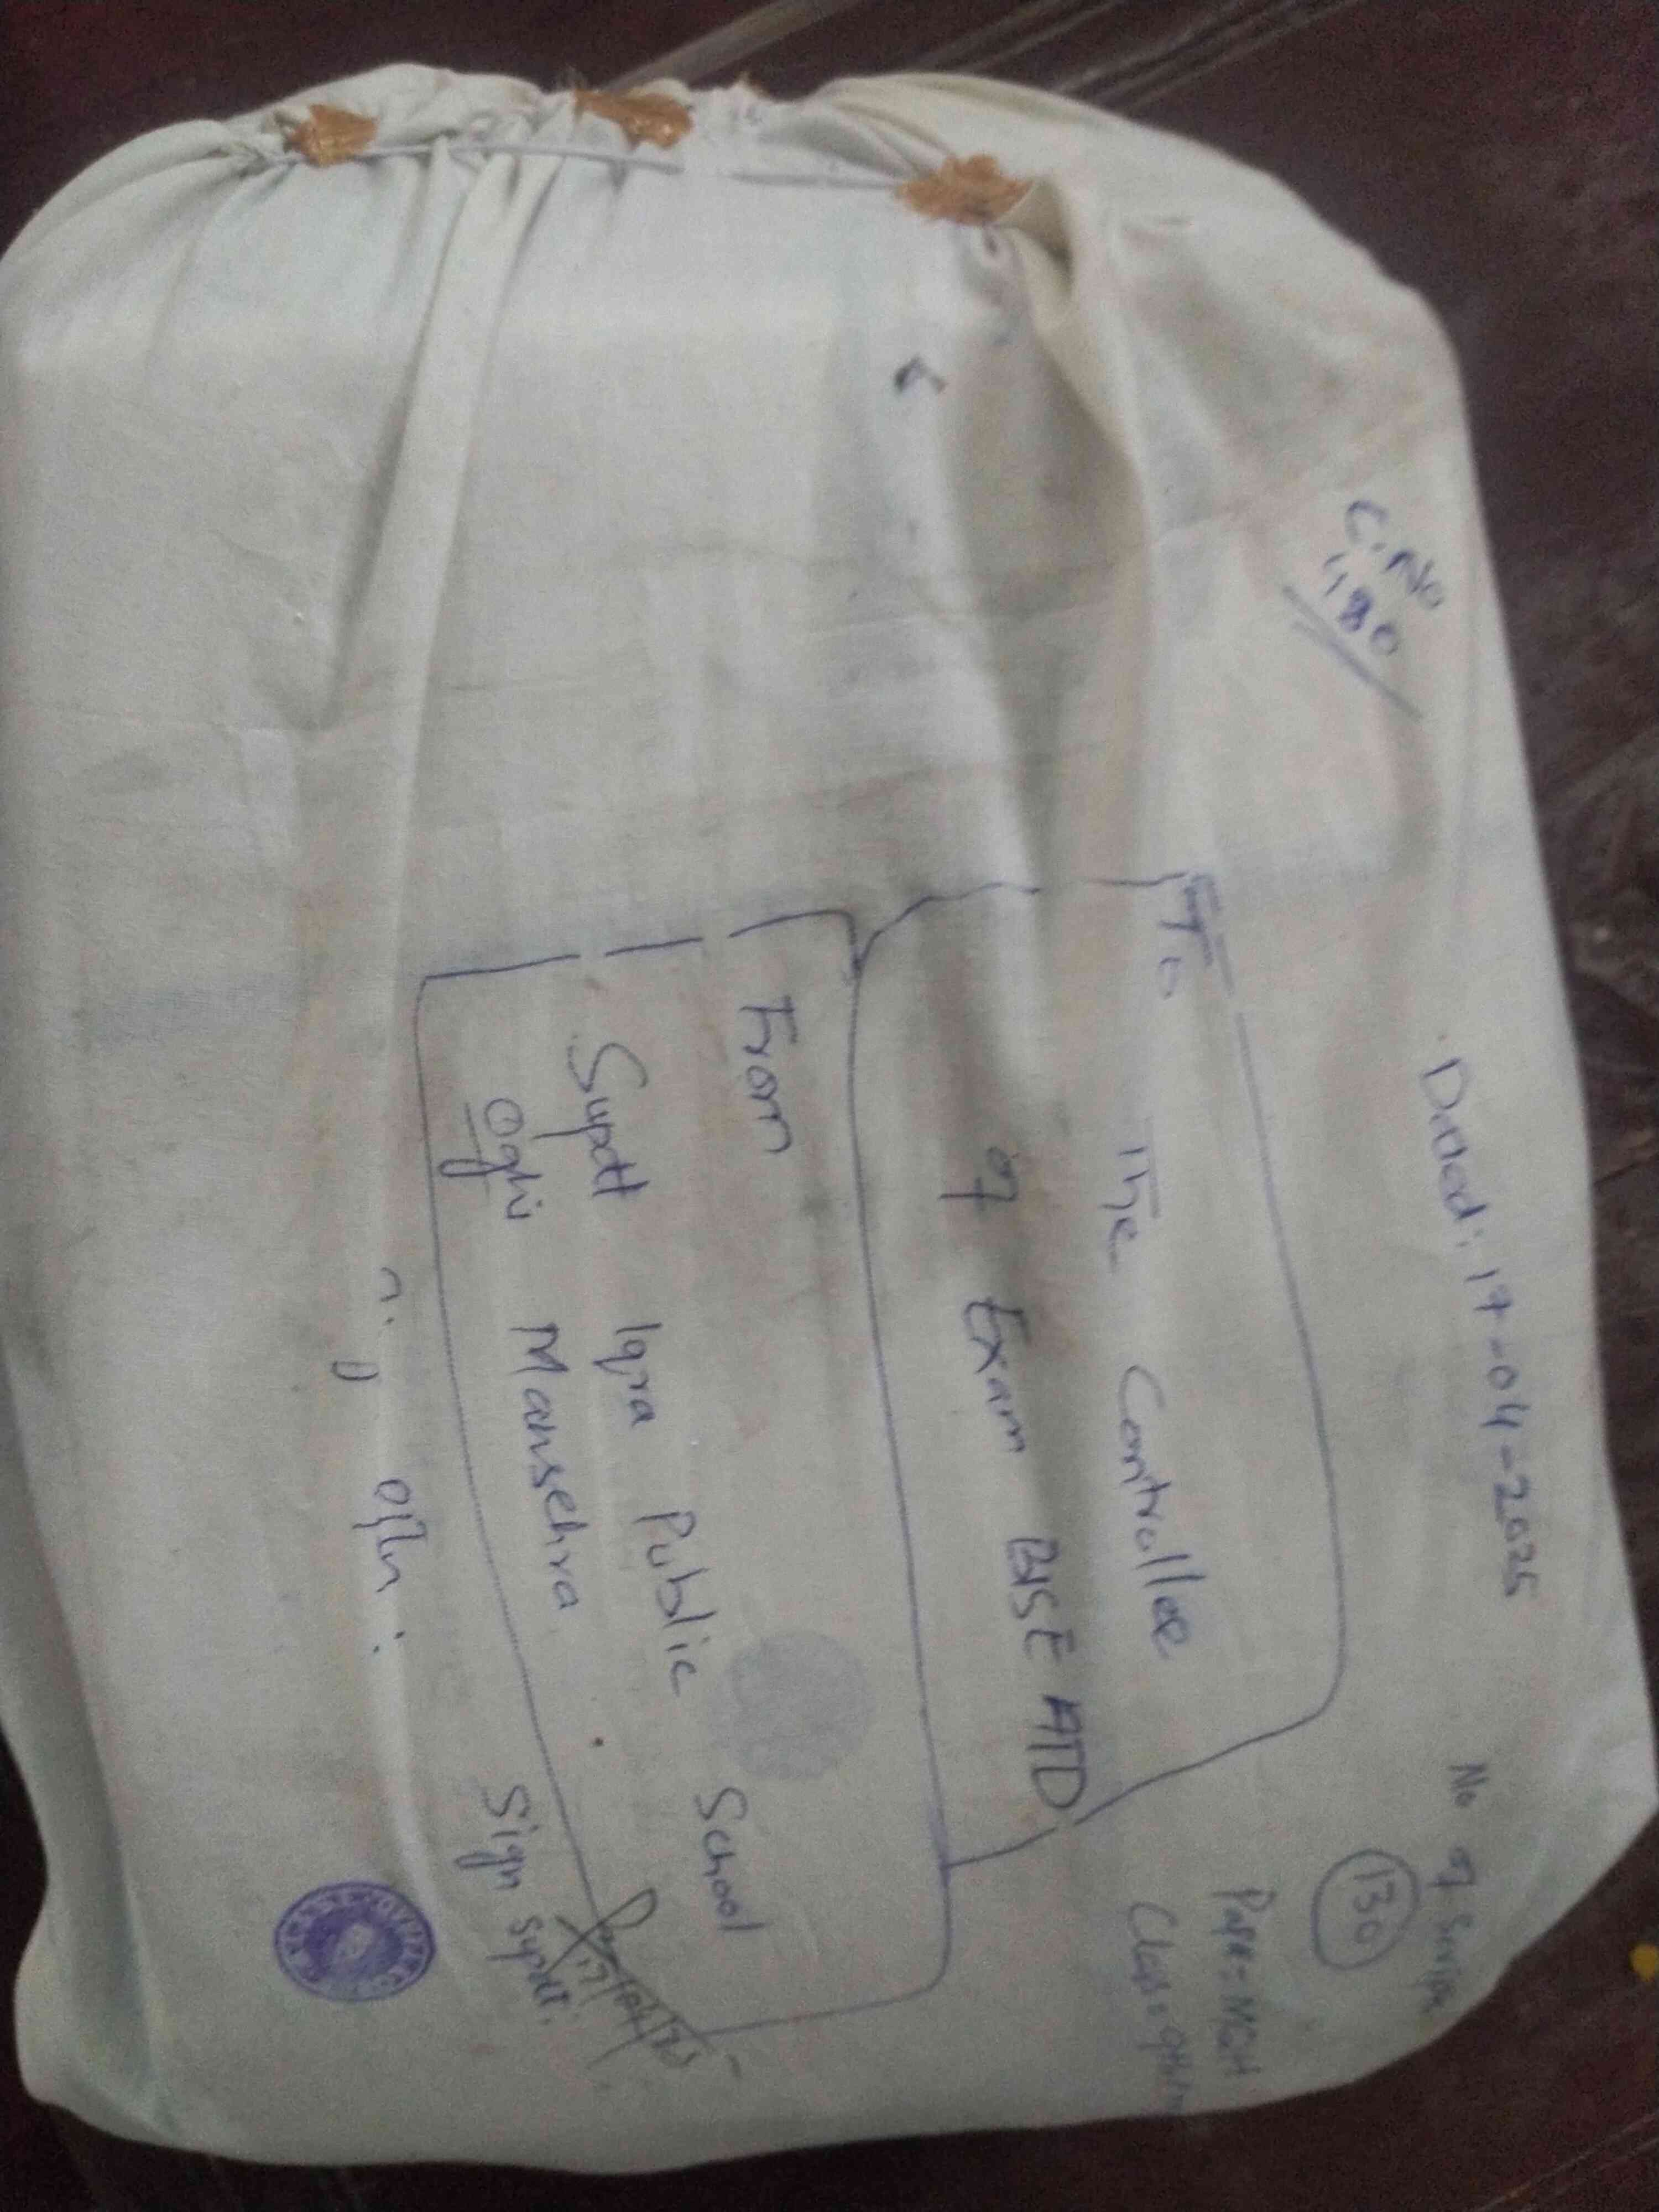 C.No
480
Dated: 17-04-2025
No of Scripts
130
Paper = MQH
Class: 9th
To
The Controller
of Exam BISE ATD
From
Supdtt Iqra Public School
Oghi Mansehra
Sign Supdtt.
Oghi